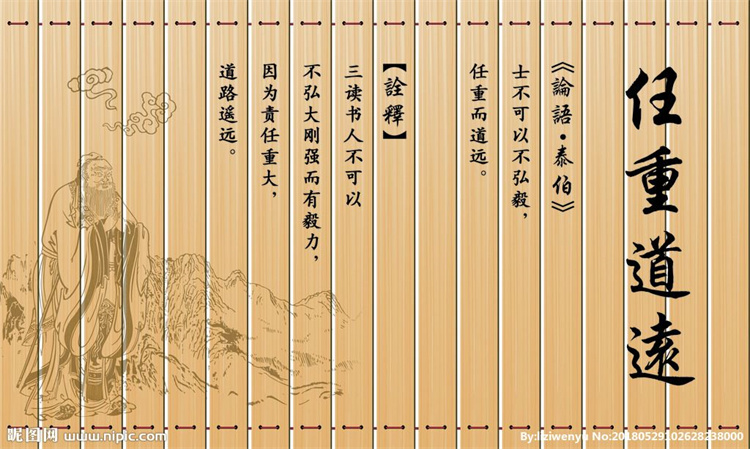 任重道遠
《論語·泰伯》
士不可以不弘毅，
任重而道远。
【詮釋】
三读书人不可以
不弘大刚强而有毅力，
因为责任重大，
道路遥远。
昵图网 www.nipic.com
By:liziwenyu No:20180529102628238000